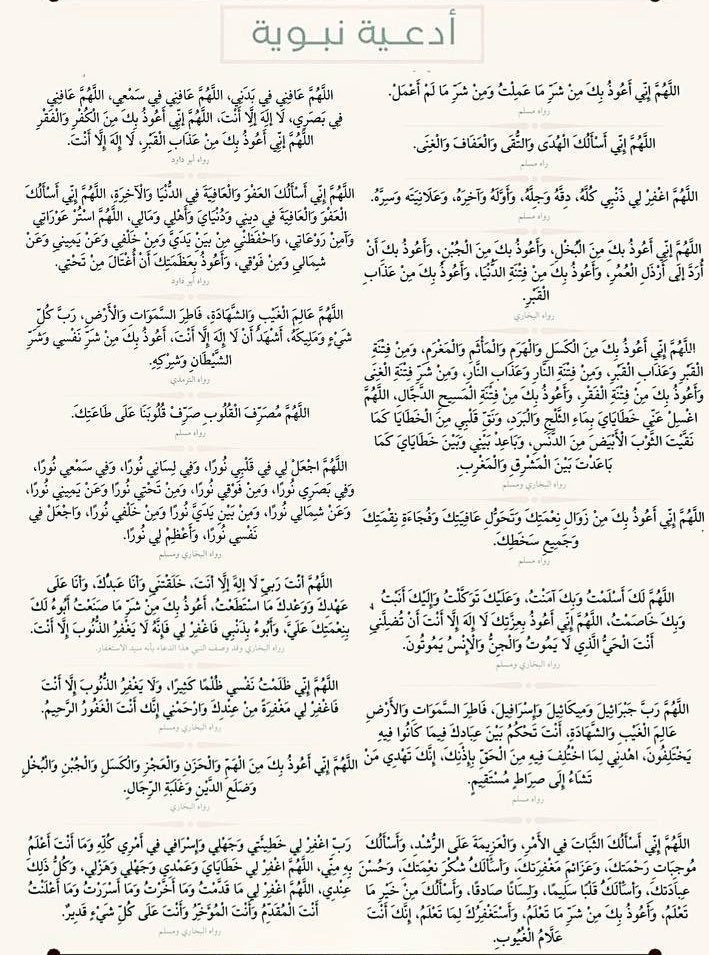 أدعية نبوية
اللَّهُمَّ إِنِّي أَعُوذُ بِكَ مِنْ شَرِّ مَا عَمِلْتُ وَمِنْ شَرِّ مَا لَمْ أَعْمَلْ.
رواه مسلم
اللَّهُمَّ إِنِّي أَسْأَلُكَ الْهُدَى وَالتُّقَى وَالْعَفَافَ وَالْغِنَى.
راه مسلم
اللَّهُمَّ اغْفِرْ لِي ذَنْبِي كُلَّهُ، دِقَّهُ وَجِلَّهُ، وَأَوَّلَهُ وَآخِرَهُ، وَعَلَانِيَتَه وَسِرَّهُ.
رواه مسلم
اللَّهُمَّ إِنِّي أَعُوذُ بِكَ مِنَ الْبُخْلِ، وَأَعُوذُ بِكَ مِنَ الْجُبْنِ، وَأَعُوذُ بِكَ أَنْ
أُرَدَّ إِلَى أَرْذَلِ الْعُمُرِ، وَأَعُوذُ بِكَ مِنْ فِتْنَةِ الدُّنْيَا، وَأَعُوذُ بِكَ مِنْ عَذَابِ
الْقَبْرِ.
رواه البخاري
اللَّهُمَّ إِنِّي أَعُوذُ بِكَ مِنَ الْكَسَلِ وَالْهَرَمِ وَالْمَأْثَمِ وَالْمَغْرَمِ، وَمِنْ فِتْنَةِ
الْقَبْرِ وَعَذَابِ الْقَبْرِ، وَمِنْ فِتْنَةِ النَّارِ وَعَذَابِ النَّارِ، وَمِنْ شَرِّ فِتْنَةِ الْغِنَى
وَأَعُوذُ بِكَ مِنْ فِتْنَةِ الْفَقْرِ، وَأَعُوذُ بِكَ مِنْ فِتْنَةِ الْمَسِيحِ الدَّجَّالِ، اللَّهُمَّ
اغْسِلْ عَنِّي خَطَايَايَ بِمَاءِ الثَّلْجِ وَالْبَرَدِ، وَنَقِّ قَلْبِي مِنَ الْخَطَايَا كَمَا
نَقَّيْتَ الثَّوْبَ الْأَبْيَضَ مِنَ الدَّنَسِ، وَبَاعِدْ بَيْنِي وَبَيْنَ خَطَايَايَ كَمَا
بَاعَدْتَ بَيْنَ الْمَشْرِقِ وَالْمَغْرِبِ.
رواه البخاري ومسلم
اللَّهُمَّ إِنِّي أَعُوذُ بِكَ مِنْ زَوَالِ نِعْمَتِكَ وَتَحَوُّلِ عَافِيَتِكَ وَفُجَاءَةِ نِقْمَتِكَ
وَجَمِيعِ سَخَطِكَ.
رواه مسلم
اللَّهُمَّ لَكَ أَسْلَمْتُ وَبِكَ آمَنْتُ، وَعَلَيْكَ تَوَكَّلْتُ وَإِلَيْكَ أَنَبْتُ
وَبِكَ خَاصَمْتُ، اللَّهُمَّ إِنِّي أَعُوذُ بِعِزَّتِكَ لَا إِلَهَ إِلَّا أَنْتَ أَنْ تُضِلَّنِي
أَنْتَ الْحَيُّ الَّذِي لَا يَمُوتُ وَالْجِنُّ وَالْإِنْسُ يَمُوتُونَ.
رواه البخاري ومسلم
اللَّهُمَّ رَبَّ جَبْرَائِيلَ وَمِيكَائِيلَ وَإِسْرَافِيلَ، فَاطِرَ السَّمَوَاتِ وَالأَرْضِ
عَالِمَ الْغَيْبِ وَالشَّهَادَةِ، أَنْتَ تَحْكُمُ بَيْنَ عِبَادِكَ فِيمَا كَانُوا فِيهِ
يَخْتَلِفُونَ، اهْدِنِي لِمَا اخْتُلِفَ فِيهِ مِنَ الْحَقِّ بِإِذْنِكَ، إِنَّكَ تَهْدِي مَنْ
تَشَاءُ إِلَى صِرَاطٍ مُسْتَقِيمٍ.
رواه مسلم
اللَّهُمَّ إِنِّي أَسْأَلُكَ الثَّبَاتَ فِي الأَمْرِ، وَالْعَزِيمَةَ عَلَى الرُّشْدِ، وَأَسْأَلُكَ
مُوجِبَاتِ رَحْمَتِكَ، وَعَزَائِمَ مَغْفِرَتِكَ، وَأَسْأَلُكَ شُكْرَ نِعْمَتِكَ، وَحُسْنَ
عِبَادَتِكَ، وَأَسْأَلُكَ قَلْبًا سَلِيمًا، وَلِسَانًا صَادِقًا، وَأَسْأَلُكَ مِنْ خَيْرِ مَا
تَعْلَمُ، وَأَعُوذُ بِكَ مِنْ شَرِّ مَا تَعْلَمُ، وَأَسْتَغْفِرُكَ لِمَا تَعْلَمُ، إِنَّكَ أَنْتَ
عَلَّامُ الْغُيُوبِ.
اللَّهُمَّ عَافِنِي فِي بَدَنِي، اللَّهُمَّ عَافِنِي فِي سَمْعِي، اللَّهُمَّ عَافِنِي
فِي بَصَرِي، لَا إِلَهَ إِلَّا أَنْتَ، اللَّهُمَّ إِنِّي أَعُوذُ بِكَ مِنَ الْكُفْرِ وَالْفَقْرِ
اللَّهُمَّ إِنِّي أَعُوذُ بِكَ مِنْ عَذَابِ الْقَبْرِ، لَا إِلَهَ إِلَّا أَنْتَ.
رواه أبو داود
اللَّهُمَّ إِنِّي أَسْأَلُكَ الْعَفْوَ وَالْعَافِيَةَ فِي الدُّنْيَا وَالْآخِرَةِ، اللَّهُمَّ إِنِّي أَسْأَلُكَ
الْعَفْوَ وَالْعَافِيَةَ فِي دِينِي وَدُنْيَايَ وَأَهْلِي وَمَالِي، اللَّهُمَّ اسْتُرْ عَوْرَاتِي
وَآمِنْ رَوْعَاتِي، وَاحْفَظْنِي مِنْ بَيْنِ يَدَيَّ وَمِنْ خَلْفِي وَعَنْ يَمِينِي وَعَنْ
شِمَالِي وَمِنْ فَوْقِي، وَأَعُوذُ بِعَظَمَتِكَ أَنْ أُغْتَالَ مِنْ تَحْتِي.
رواه أبو داود
اللَّهُمَّ عَالِمَ الْغَيْبِ وَالشَّهَادَةِ، فَاطِرَ السَّمَوَاتِ وَالْأَرْضِ، رَبَّ كُلِّ
شَيْءٍ وَمَلِيكَهُ، أَشْهَدُ أَنْ لَا إِلَهَ إِلَّا أَنْتَ، أَعُوذُ بِكَ مِنْ شَرِّ نَفْسِي وَشَرِّ
الشَّيْطَانِ وَشِرْكِهِ.
رواه الترمذي
اللَّهُمَّ مُصَرِّفَ الْقُلُوبِ صَرِّفْ قُلُوبَنَا عَلَى طَاعَتِكَ.
رواه مسلم
اللَّهُمَّ اجْعَلْ لِي فِي قَلْبِي نُورًا، وَفِي لِسَانِي نُورًا، وَفِي سَمْعِي نُورًا،
وَفِي بَصَرِي نُورًا، وَمِنْ فَوْقِي نُورًا، وَمِنْ تَحْتِي نُورًا وَعَنْ يَمِينِي نُورًا،
وَعَنْ شِمَالِي نُورًا، وَمِنْ بَيْنِ يَدَيَّ نُورًا، وَمِنْ خَلْفِي نُورًا، وَاجْعَلْ فِي
نَفْسِي نُورًا، وَأَعْظِمْ لِي نُورًا.
رواه البخاري ومسلم
اللَّهُمَّ أَنْتَ رَبِّي لَا إِلَهَ إِلَّا أَنتَ، خَلَقْتَنِي وَأَنَا عَبدُكَ، وَأَنَا عَلَى
عَهْدِكَ وَوَعْدِكَ مَا اسْتَطَعْتُ، أَعُوذُ بِكَ مِنْ شَرِّ مَا صَنَعْتُ أَبُوءُ لَكَ
بِنِعْمَتِكَ عَلَيَّ، وَأَبُوءُ بِذَنْبِي فَاغْفِرْ لِي فَإِنَّهُ لَا يَغْفِرُ الذُّنُوبَ إِلَّا أَنْتَ.
رواه البخاري وقد وصف النبي هذا الدعاء بأنه سيد الاستغفار.
اللَّهُمَّ إِنِّي ظَلَمْتُ نَفْسِي ظُلْمًا كَثِيرًا، وَلَا يَغْفِرُ الذُّنُوبَ إِلَّا أَنْتَ
فَاغْفِرْ لِي مَغْفِرَةً مِنْ عِنْدِكَ وَارْحَمْنِي إِنَّكَ أَنْتَ الْغَفُورُ الرَّحِيمُ.
رواه البخاري ومسلم
اللَّهُمَّ إِنِّي أَعُوذُ بِكَ مِنَ الْهَمِّ وَالْحَزَنِ وَالْعَجْزِ وَالْكَسَلِ وَالْجُبْنِ وَالْبُخْلِ
وَضَلَعِ الدَّيْنِ وَغَلَبَةِ الرِّجَالِ.
رواه البخاري
رَبِّ اغْفِرْ لِي خَطِيئَتِي وَجَهْلِي وَإِسْرَافِي فِي أَمْرِي كُلِّهِ وَمَا أَنْتَ أَعْلَمُ
بِهِ مِنِّي، اللَّهُمَّ اغْفِرْ لِي خَطَايَايَ وَعَمْدِي وَجَهْلِي وَهَزْلِي، وَكُلُّ ذَلِكَ
عِنْدِي، اللَّهُمَّ اغْفِرْ لِي مَا قَدَّمْتُ وَمَا أَخَّرْتُ وَمَا أَسْرَرْتُ وَمَا أَعْلَنْتُ
أَنْتَ الْمُقَدِّمُ وَأَنْتَ الْمُؤَخِّرُ وَأَنْتَ عَلَى كُلِّ شَيْءٍ قَدِيرٌ.
رواه البخاري ومسلم